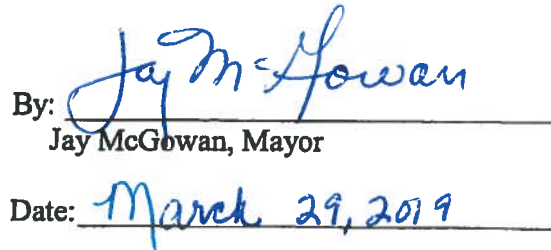 By: Jay McGowan
Jay McGowan, Mayor
Date: March 29, 2019